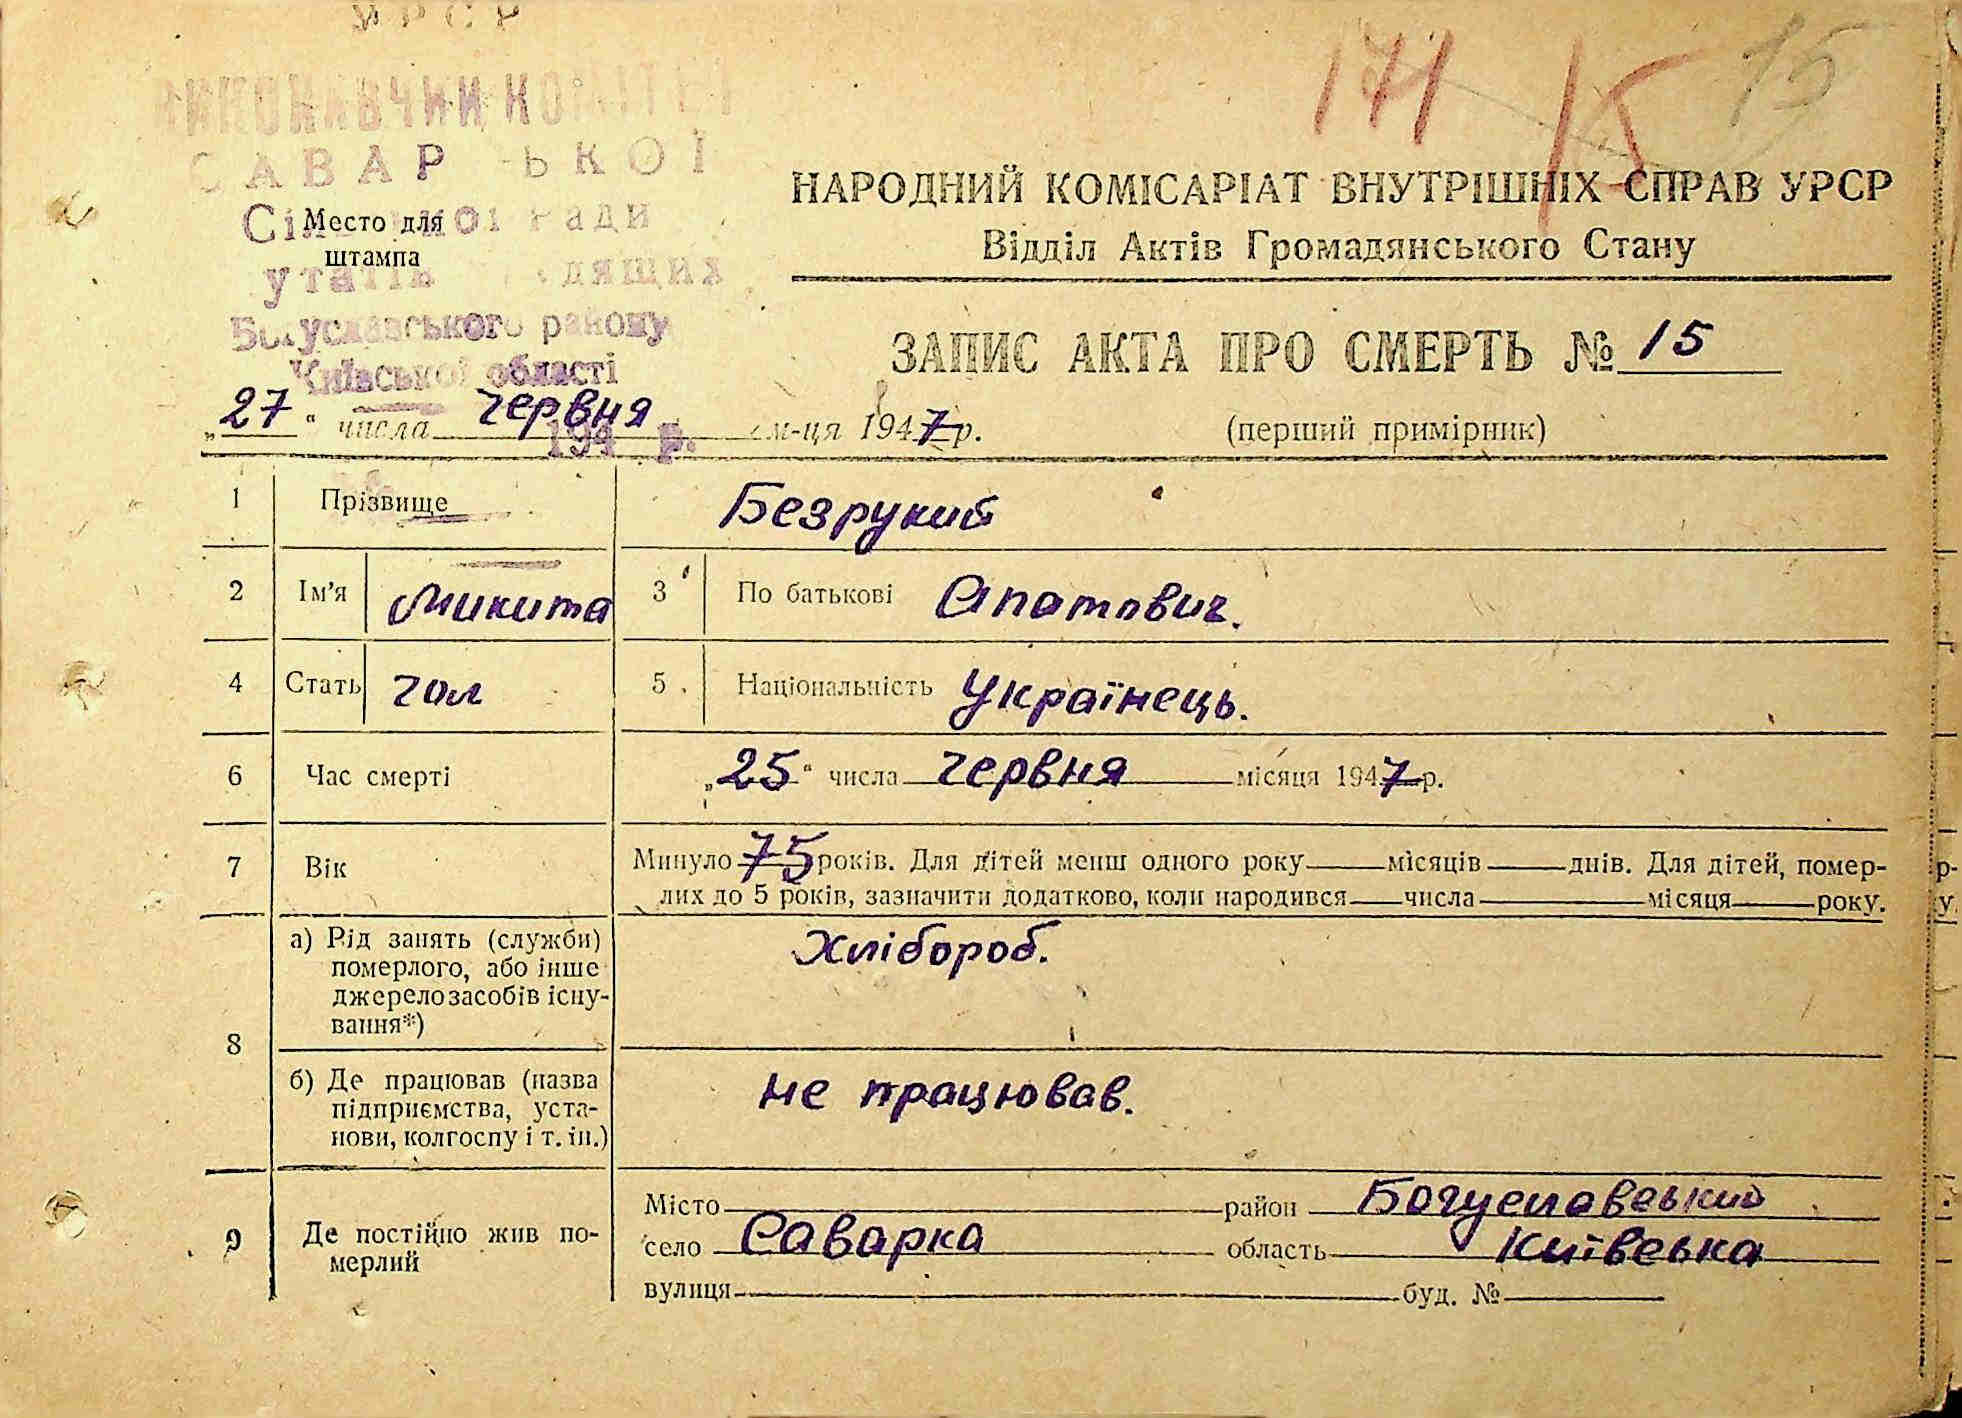 УРСР
ВИКОНАВЧИЙ КОМІТЕТ
САВАР ЬКОЇ
Сіл ної Ради
Место для
штампа
утатів дящих
Богуславського району
Київської області
194 р.
171 15 15
НАРОДНИЙ КОМІСАРІАТ ВНУТРІШНІХ СПРАВ УРСР
Відділ Актів Громадянського Стану
ЗАПИС АКТА ПРО СМЕРТЬ № 15
„27“ числа червня м-ця 1947 р.
(перший примірник)
1 Прізвище Безрукий
2 Ім'я Микита 3 По батькові Опатович.
4 Стать чол 5 Національність Українець.
6 Час смерті „25“ числа червня місяця 1947 р.
7 Вік Минуло 75 років. Для дітей менш одного року місяців днів. Для дітей, помер-
лих до 5 років, зазначити додатково, коли народився числа місяця року.
8 а) Рід занять (служби) Хлібороб.
померлого, або інше
джерело засобів існу-
вання*)
б) Де працював (назва не працював.
підприємства, уста-
нови, колгоспу і т. ін.)
9 Де постійно жив по-
мерлий
Місто район Богуславський
село Саварка область Київська
вулиця буд. №